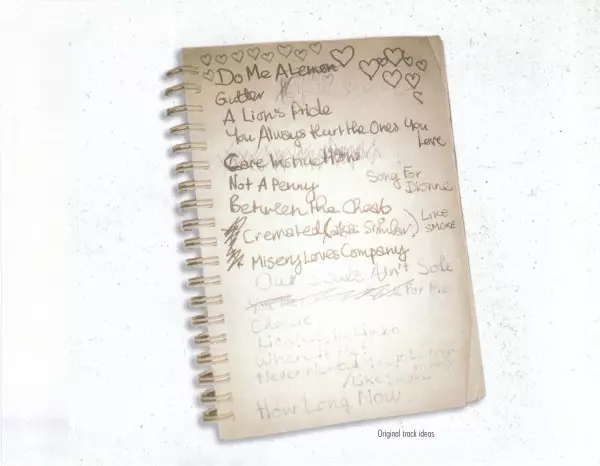 Do Me A Lemon
Gutter
A Lion's Pride
You Always Hurt the Ones You
Love
Care Instructions
Not A Penny
Song For
Dionne
Between The Cheats
Cremated
LIKE
SMOKE
Misery Loves Company
Our Souls Ain't Sole
For Me
In Limbo
Never
/Like Smoke
How Long Now
Original track ideas